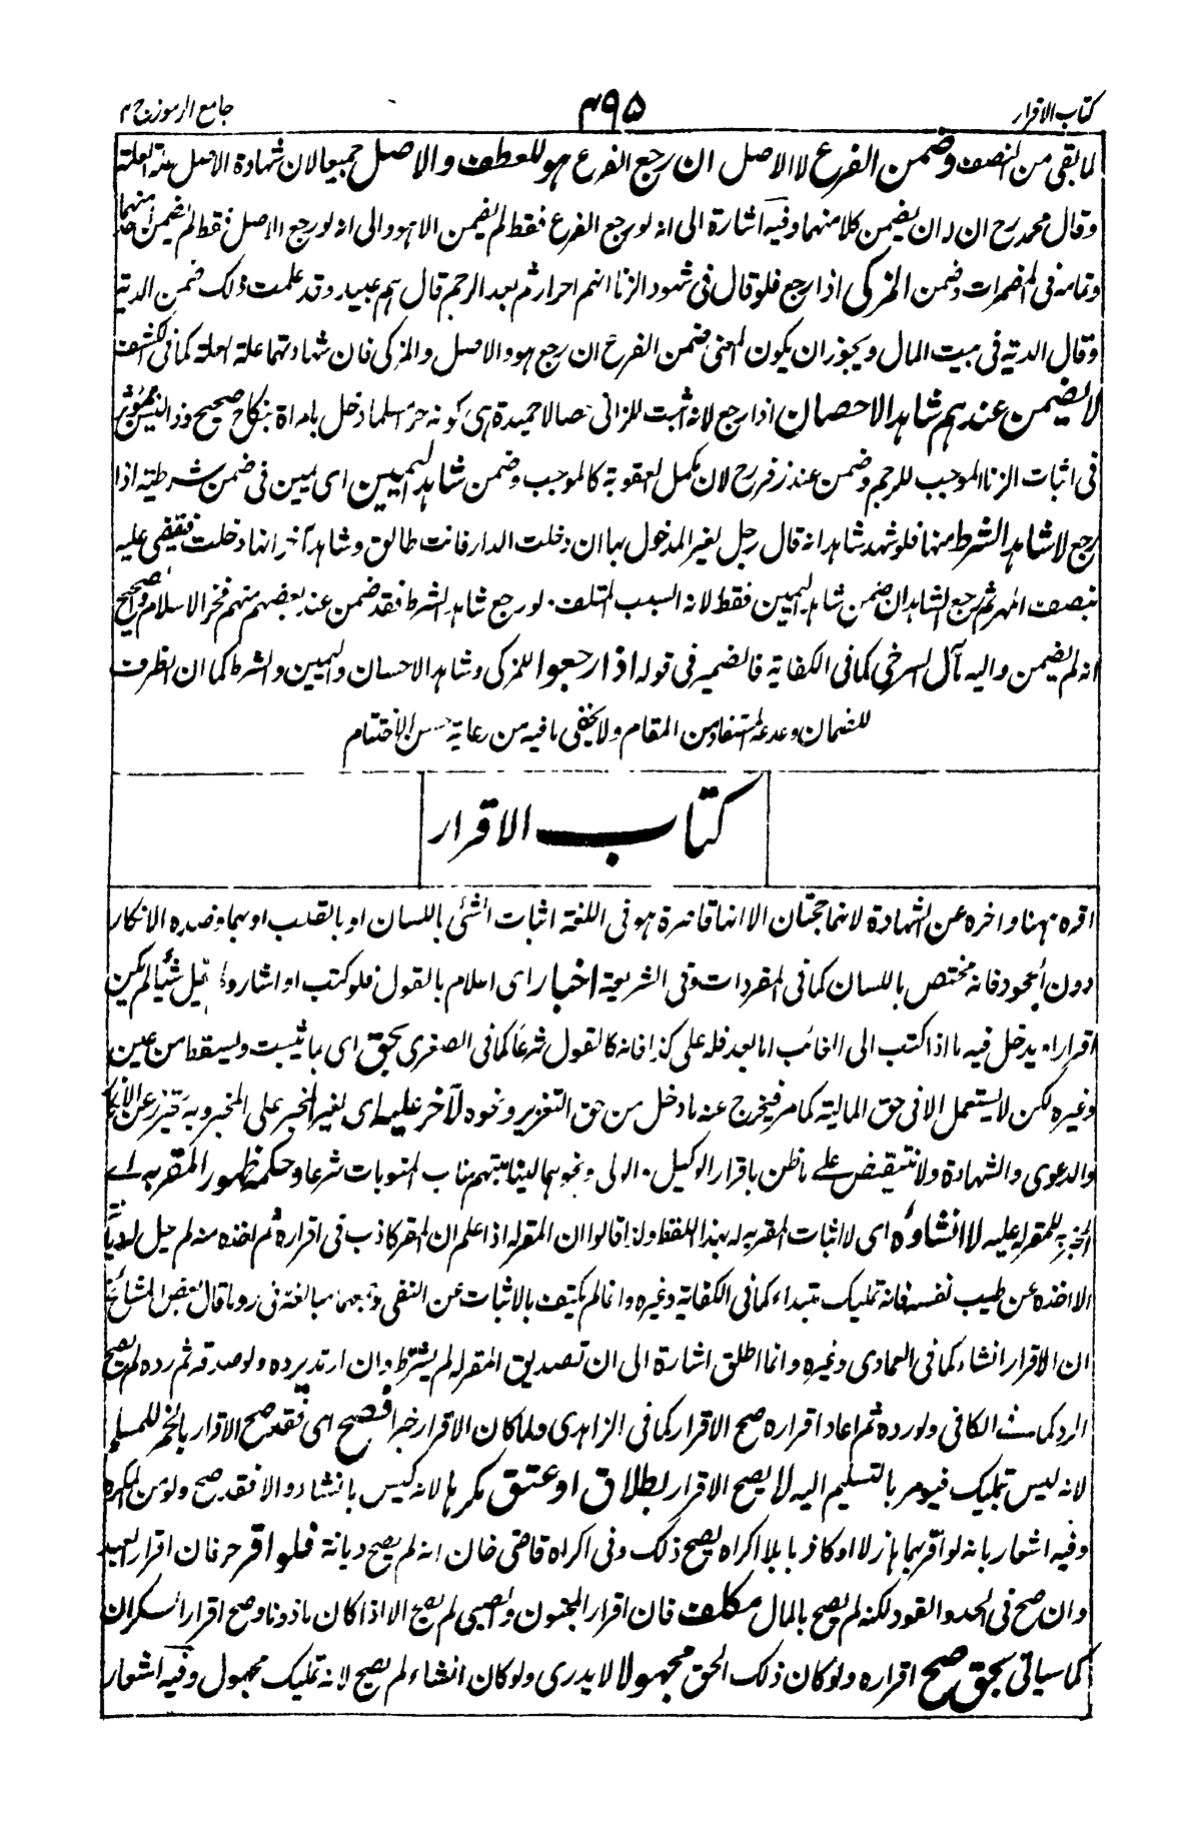 كتاب الاقرار
۴۹۵
جامع الرموز ج ۲
لما بقى من النصف وضمن الفرع لا الاصل ان رجع الفرع هو للعطف والاصل جميعا لان شهادة الاصل علة لعلة
وقال محمد رح ان له ان يضمن كلا منهما وفيه اشارة الى انه لو رجع الفرع فقط لم يضمن الا هو والى انه لو رجع الاصل فقط لم يضمن احد منهما
وتمامه فى المضمرات وضمن المزكى اذا رجع فلو قال فى شهود الزنا انهم احرار ثم بعد الرجم قال هم عبيد وقد علمت ذلك ضمن الدية
وقالا الدية فى بيت المال ويجوز ان يكون المعنى ضمن الفرع ان رجع هو والاصل والمزكى فان شهادتهما علة لعلة كما فى الكشف
لا يضمن عندهم شاهد الاحصان اذا رجع لانه اثبت للزانى خصالا حميدة هى كونه حرا مسلما دخل بامراة بنكاح صحيح وذا ليس بمؤثر
فى اثبات الزنا الموجب للرجم وضمن عند زفر رح لان مكمل العقوبة كالموجب وضمن شاهد اليمين اى يمين فى ضمن شرطية اذا
رجع لا شاهد الشرط منها فلو شهد شاهد انه قال رجل لغير المدخول بها ان دخلت الدار فانت طالق وشاهد آخر انها دخلت فقضى عليه
بنصف المهر ثم رجع الشاهدان ضمن شاهد اليمين فقط لانه السبب المتلف ولو رجع شاهد الشرط فقد ضمن عند بعضهم منهم فخر الاسلام والصحيح
انه لم يضمن واليه مال السرخسى كما فى الكفاية فالضمير فى قوله اذا رجعوا للمزكى وشاهد الاحسان واليمين والشرط كما ان الظرف
للضمان وعدمه المستفاد من المقام ولا يخفى ما فيه من رعاية حسن الاختتام
كتاب الاقرار
اقره مهنا واخره عن الشهادة لانهما حجتان الا انها قاصرة هو فى اللغة اثبات الشئ باللسان او بالقلب او بهما وضده الانكار
دون الجحود فانه مختص باللسان كما فى المفردات وفى الشريعة اخبار اى اعلام بالقول فلو كتب او اشار ولم يقل شيئا لم يكن
اقرارا ويدخل فيه ما اذا كتب الى الغائب اما بعد فله على كذا فانه كالقول شرعا كما فى الصغرى بحق اى بما يثبت ويسقط من عين
وغيره لكن لا يستعمل الا فى حق المالية كما مر فيخرج عنه ما دخل من حق التعزير ونحوه لآخر عليه اى لغير المخبر على المخبر وبه تميز عن الانكار
والدعوى والشهادة ولا ينتقض على ما ظن باقرار الوكيل والولى ونحوهما لنيابتهم مناب المنوبات شرعا وحكمه ظهور المقر به اى
المخبر به للمقر له عليه لا انشاؤه اى لا اثبات المقر به له بهذا اللفظ ولذا قالوا ان المقر له اذا علم ان المقر كاذب فى اقراره ثم اخذه منه لم يحل له ديانة
الا اخذه عن طيب نفسه فانه تمليك مبتداء كما فى الكفاية وغيره وانما لم يكتف بالاثبات عن النفى وجمعهما مبالغة فى رد ما قال بعض المشائخ
ان الاقرار انشاء كما فى العمادى وغيره وانما اطلق اشارة الى ان تصديق المقر له لم يشترط وان ارتد برده ولو صدقه ثم رده لم يصح
الرد كما فى الكافى ولو رده ثم اعاد اقراره صح الاقرار كما فى الزاهدى ولما كان الاقرار خبرا فصح اى فقد صح الاقرار بالخمر للمسلم
لانه ليس تمليك فيومر بالتسليم اليه لا يصح الاقرار بطلاق او عتق مكرها لانه ليس بانشاء والا فقد صح ولو من المكره
وفيه اشعار بانه لو اقر بهما هازلا او كاذبا بلا اكراه يصح ذلك وفى اكراه قاضى خان انه لم يصح ديانة فلو اقر حر فان اقرار العبد
وان صح فى الحد والقود لكنه لم يصح بالمال مكلف فان اقرار المجنون والصبى لم يصح الا اذا كان ماذونا وصح اقرار السكران
كما سياتى بحق صح اقراره ولو كان ذلك الحق مجهولا لا يدرى ولو كان انشاء لم يصح لانه تمليك مجهول وفيه اشعار